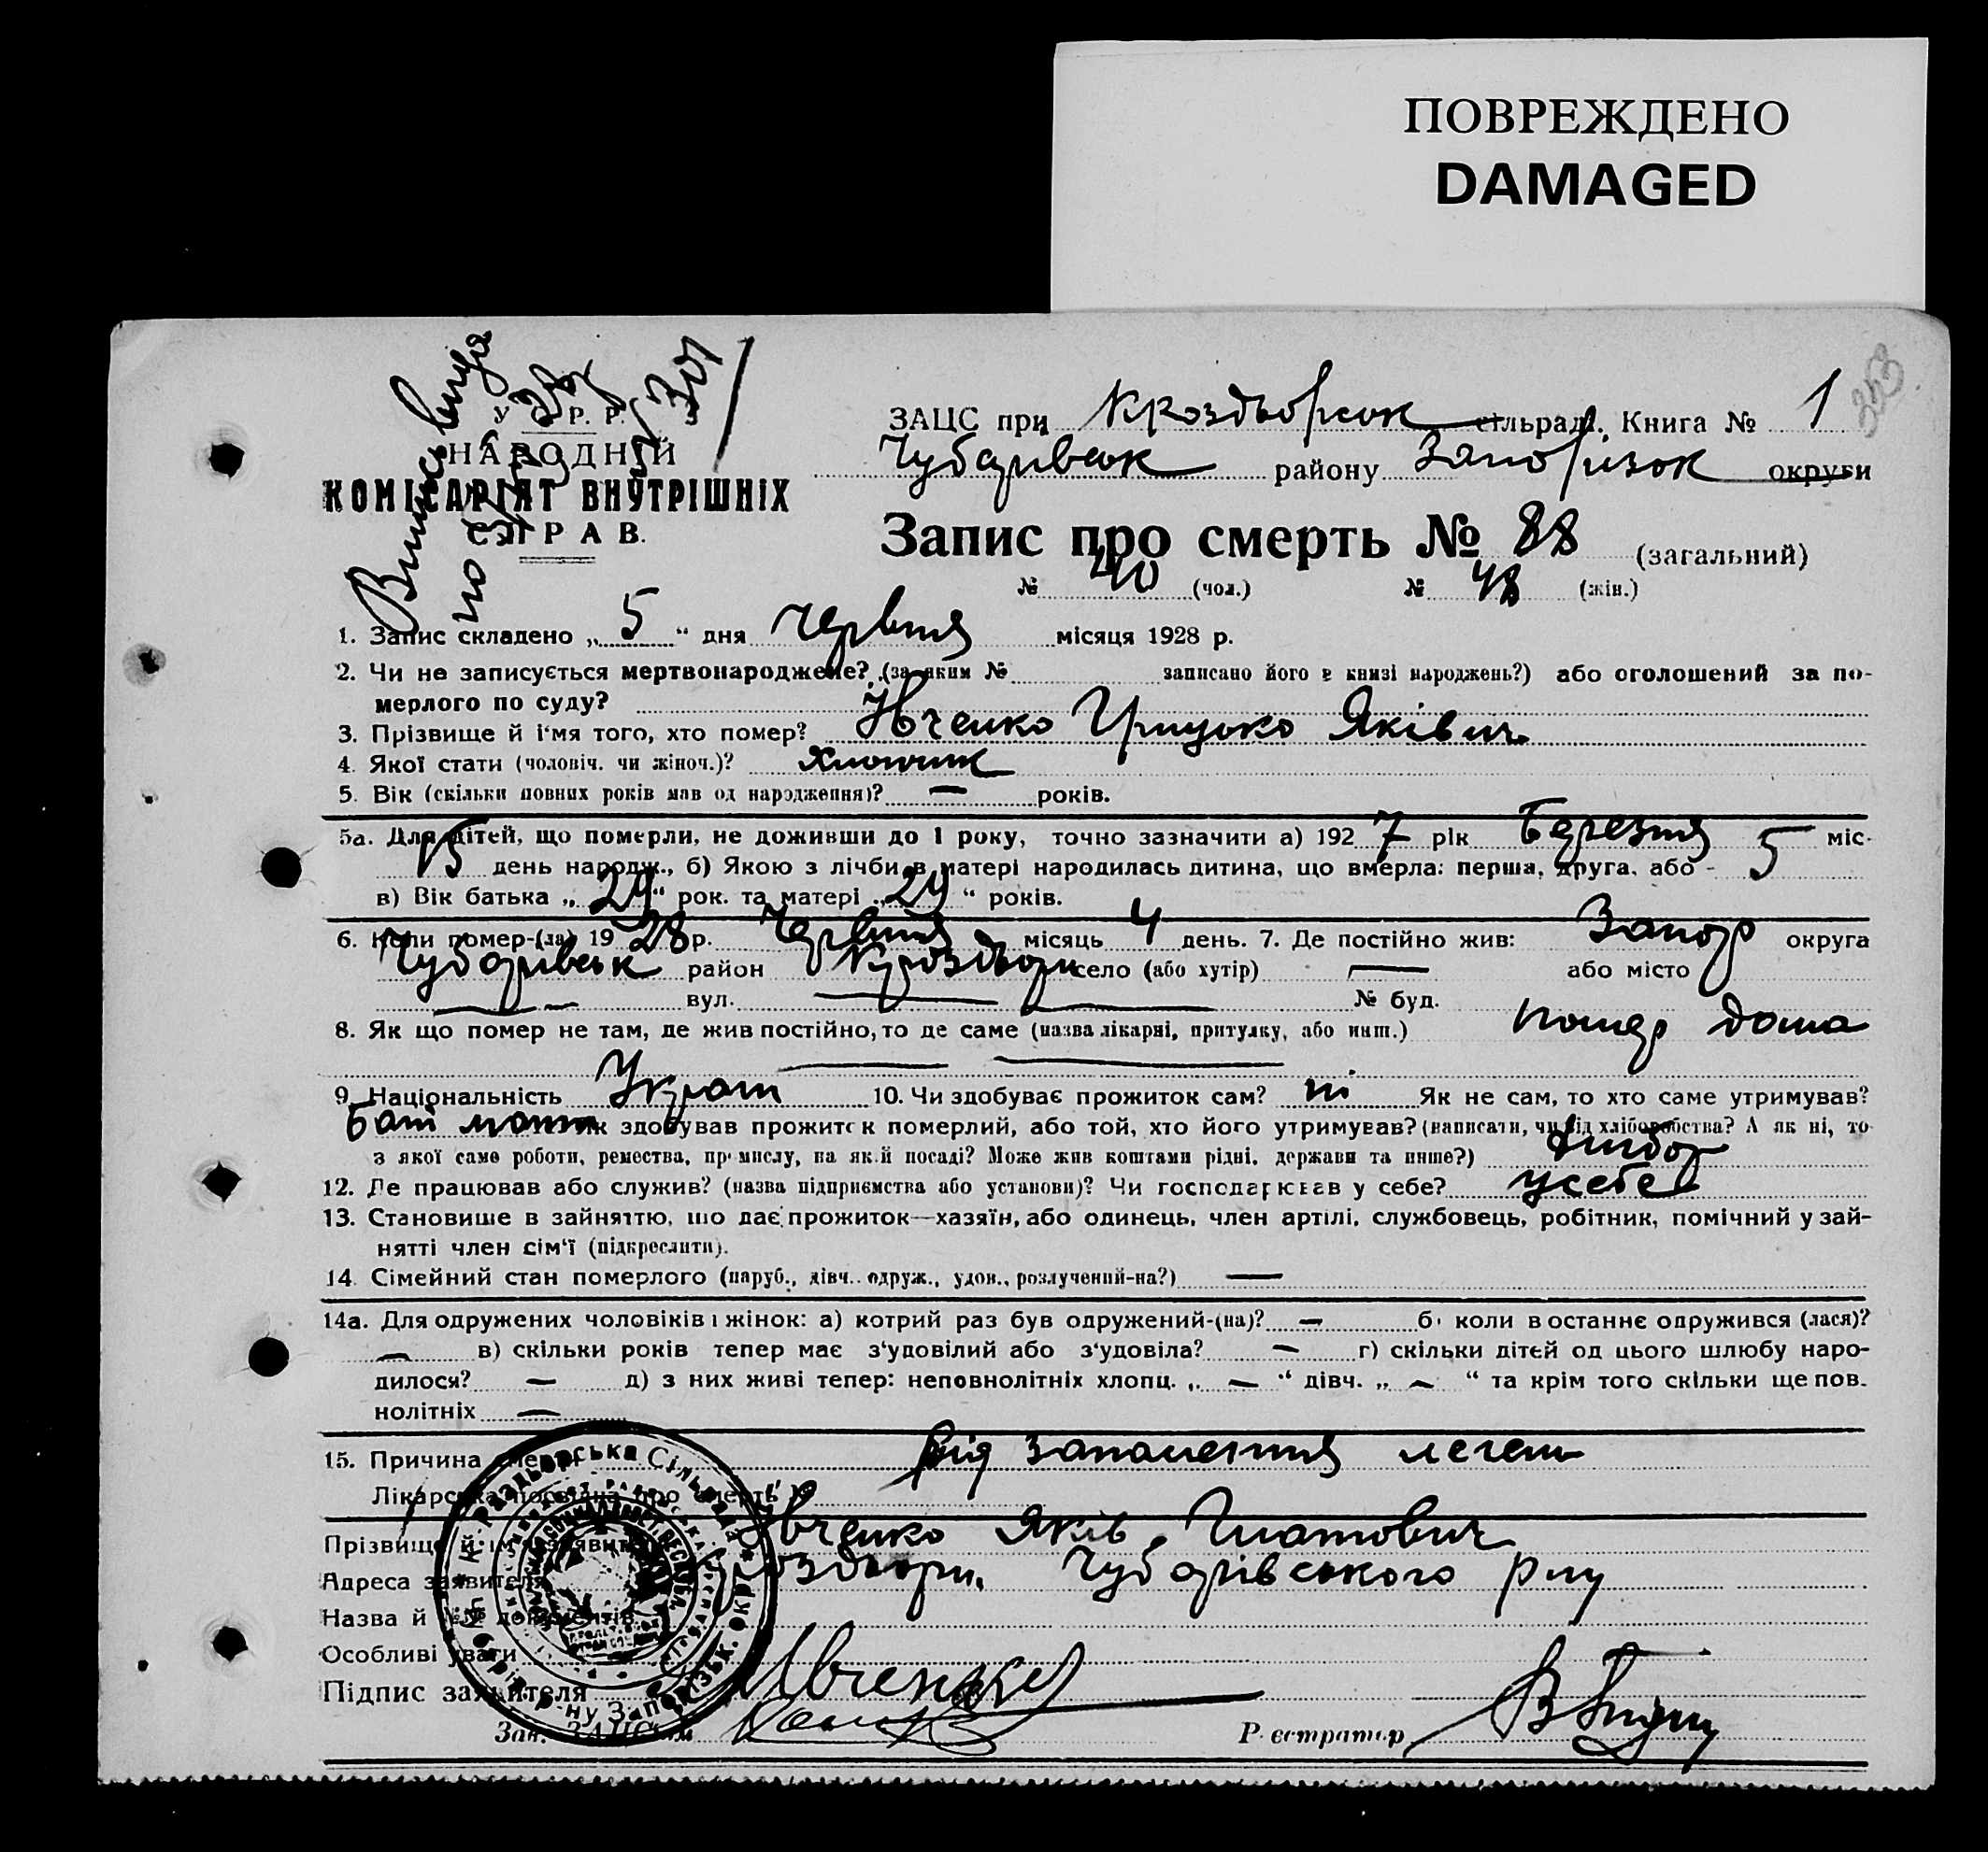 ПОВРЕЖДЕНО
DAMAGED
353
У.С.Р.Р.
НАРОДНІЙ
КОМІСАРІЯТ ВНУТРІШНІХ
СПРАВ.
ЗАЦС при Кроздьорськ сільраді. Книга № 1
Чубарівськ району Запорізьк округи
Запис про смерть № 88 (загальний)
№ 40 (чол.) № 48 (жін.)
1. Запис складено „5“ дня червня місяця 1928 р.
2. Чи не записується мертвонароджене? (за яким № записано його в книзі народжень?) або оголошений за по-
мерлого по суду?
3. Прізвище й ім'я того, хто помер? Івченко Грицько Яківич
4. Якої стати (чоловіч. чи жіноч.)? Хлопчик
5. Вік (скільки повних років мав од народження)? — років.
5а. Для дітей, що померли, не доживши до 1 року, точно зазначити а) 1927 рік Березня міс.
15 день народж., б) Якою з лічби в матері народилась дитина, що вмерла: перша, друга, або - 5
в) Вік батька „29“ рок. та матері „29“ років.
6. Коли помер-(ла) 1928 р. червня місяць 4 день. 7. Де постійно жив: Запор округа
Чубарівськ район Кроздори село (або хутір) — або місто
— вул. — № буд.
8. Як що помер не там, де жив постійно, то де саме (назва лікарні, притулку, або инш.) помер дома
9. Національність Україн 10. Чи здобуває прожиток сам? ні Як не сам, то хто саме утримував?
Бать мати Як здобував прожиток померлий, або той, хто його утримував? (написати, чи від хліборобства? А як ні, то
з якої саме роботи, ремества, промислу, на якій посаді? Може жив коштами рідні, держави та инше?) хлібор
12. Де працював або служив? (назва підприємства або установи)? Чи господарював у себе? у себе
13. Становише в зайняттю, що дає прожиток—хазяїн, або одинець, член артілі, службовець, робітник, помічний у зай-
нятті член сім'ї (підкреслити).
14. Сімейний стан померлого (паруб., дівч., одруж., удов., розлучений-на?) —
14а. Для одружених чоловіків і жінок: а) котрий раз був одружений-(на)? — б) коли в останнє одружився (лася)?
— в) скільки років тепер має з'удовілий або з'удовіла? — г) скільки дітей од цього шлюбу наро-
дилося? — д) з них живі тепер: неповнолітніх хлопц. „—“ дівч. „—“ та крім того скільки ще пов-
нолітніх —
15. Причина смерти від запалення леген
Лікарська посвідка про смерть №
Прізвище й ім'я заявителя Івченко Яків Гнатович
Адреса заявителя Кроздьори. Чубарівського р-ну
Назва й №№ документів
Особливі уваги
Підпис заявителя Ивченко
Зав. ЗАЦС'ом
Реєстратор
К. Раздьорська Сільрада
Чубарів. р-ну Запорізьк. округ